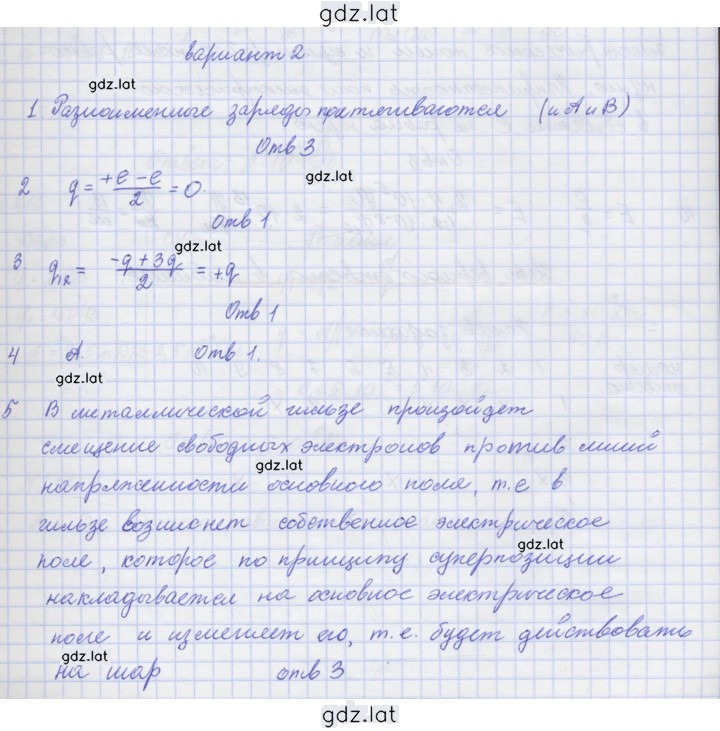 gdz.lat
вариант 2
gdz.lat
1 Разноименные заряды притягиваются (и А и В)
Отв 3
gdz.lat
2 q = +e −e / 2 = 0.
Отв 1.
gdz.lat
3. q₁₂ = −q + 3q / 2 = +q
Отв 1
4 А. Отв 1.
gdz.lat
5 В металлической гильзе произойдет
смещение свободных электронов против линий
gdz.lat
напряженности основного поля, т.е в
гильзе возникнет собственное электрическое
gdz.lat
поле, которое по принципу суперпозиции
накладывается на основное электрическое
поле и изменяет его, т.е. будет действовать
gdz.lat
на шар отв 3
gdz.lat